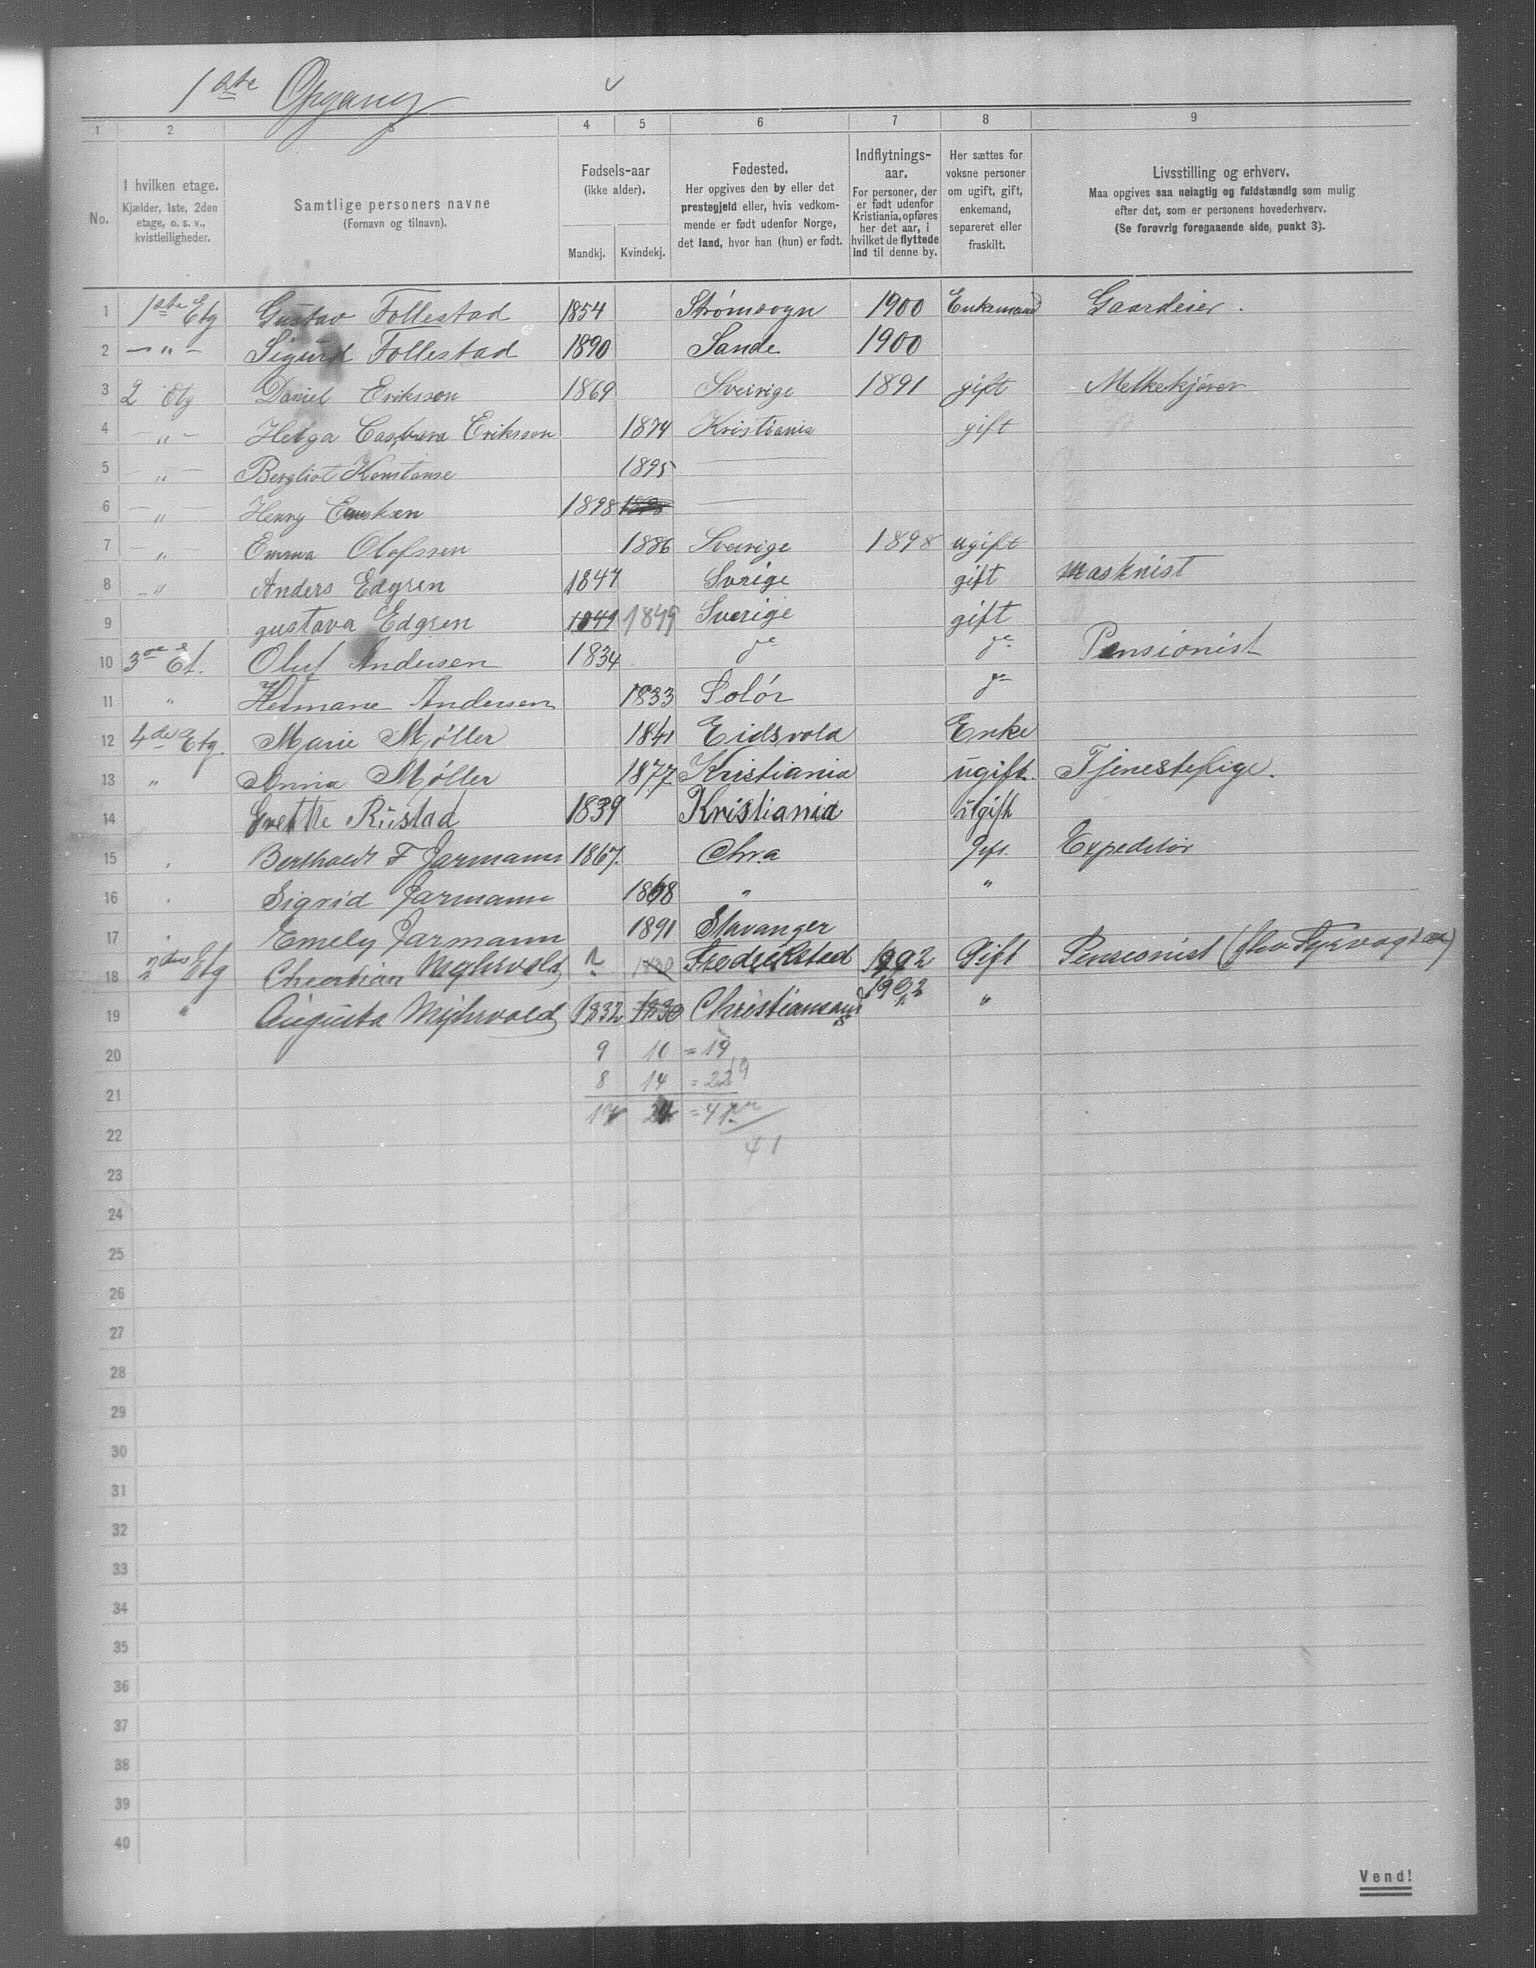 1ste Opgang
1 2 3 4 5 6 7 8 9
No.
I hvilken etage.
Kjælder, 1ste, 2den
etage, o. s. v.,
kvistleiligheder.
Samtlige personers navne
(Fornavn og tilnavn).
Fødsels-aar
(ikke alder).
Mandkj. Kvindekj.
Fødested.
Her opgives den by eller det
prestegjeld eller, hvis vedkom-
mende er født udenfor Norge,
det land, hvor han (hun) er født.
Indflytnings-
aar.
For personer, der
er født udenfor
Kristiania, opføres
her det aar, i
hvilket de flyttede
ind til denne by.
Her sættes for
voksne personer
om ugift, gift,
enkemand,
separeret eller
fraskilt.
Livsstilling og erhverv.
Maa opgives saa nøiagtig og fuldstændig som mulig
efter det, som er personens hovederhverv.
(Se forøvrig foregaaende side, punkt 3).
1 1ste Etg Gustav Follestad 1854 Strømsogn 1900 Enkemand Gaardeier.
2 — " — Sigurd Follestad 1890 Sande 1900
3 2 Etg Daniel Eriksson 1869 Sveirige 1891 gift Melkekjører
4 — " — Helga Eriksson 1874 Kristiania gift
5 — " — Bergliot Konstanse 1895 —
6 — " Henry 1898 —
7 — " Emma Olofssen 1886 Sveirige 1898 ugift
8 — " Anders Edgren 1847 Svrige gift Masknist
9 gustava Edgren 1849 1849 Sverige gift
10 3de Et. Oluf Andersen 1834 do do Pensionist
11 " Hermane Andersen 1833 Solør do
12 4de Etg. Marie Møller 1841 Eidsvold Enke
13 " Anna Møller 1877 Kristiania ugift. Tjenestepige.
14 Grethe Rustad 1839 Kristiania ugift
15 Berthold F Jarmann 1867. Chra Gift. Expeditør
16 Sigrid Jarmann 1868 " "
17 Emely Jarmann 1891 Stavanger
18 2den Etg Christian Myhrvold 1830 Fredrikstad 1902 Gift Pensionist (fhv Fyrvogter)
19 " Augusta Myhrvold 1832 1830 Christiansand 1902 "
20 9 10 = 19
21 8 14 = 22 19
22 17 24 = 41
41
23
24
25
26
27
28
29
30
31
32
33
34
35
36
37
38
39
40
Vend!